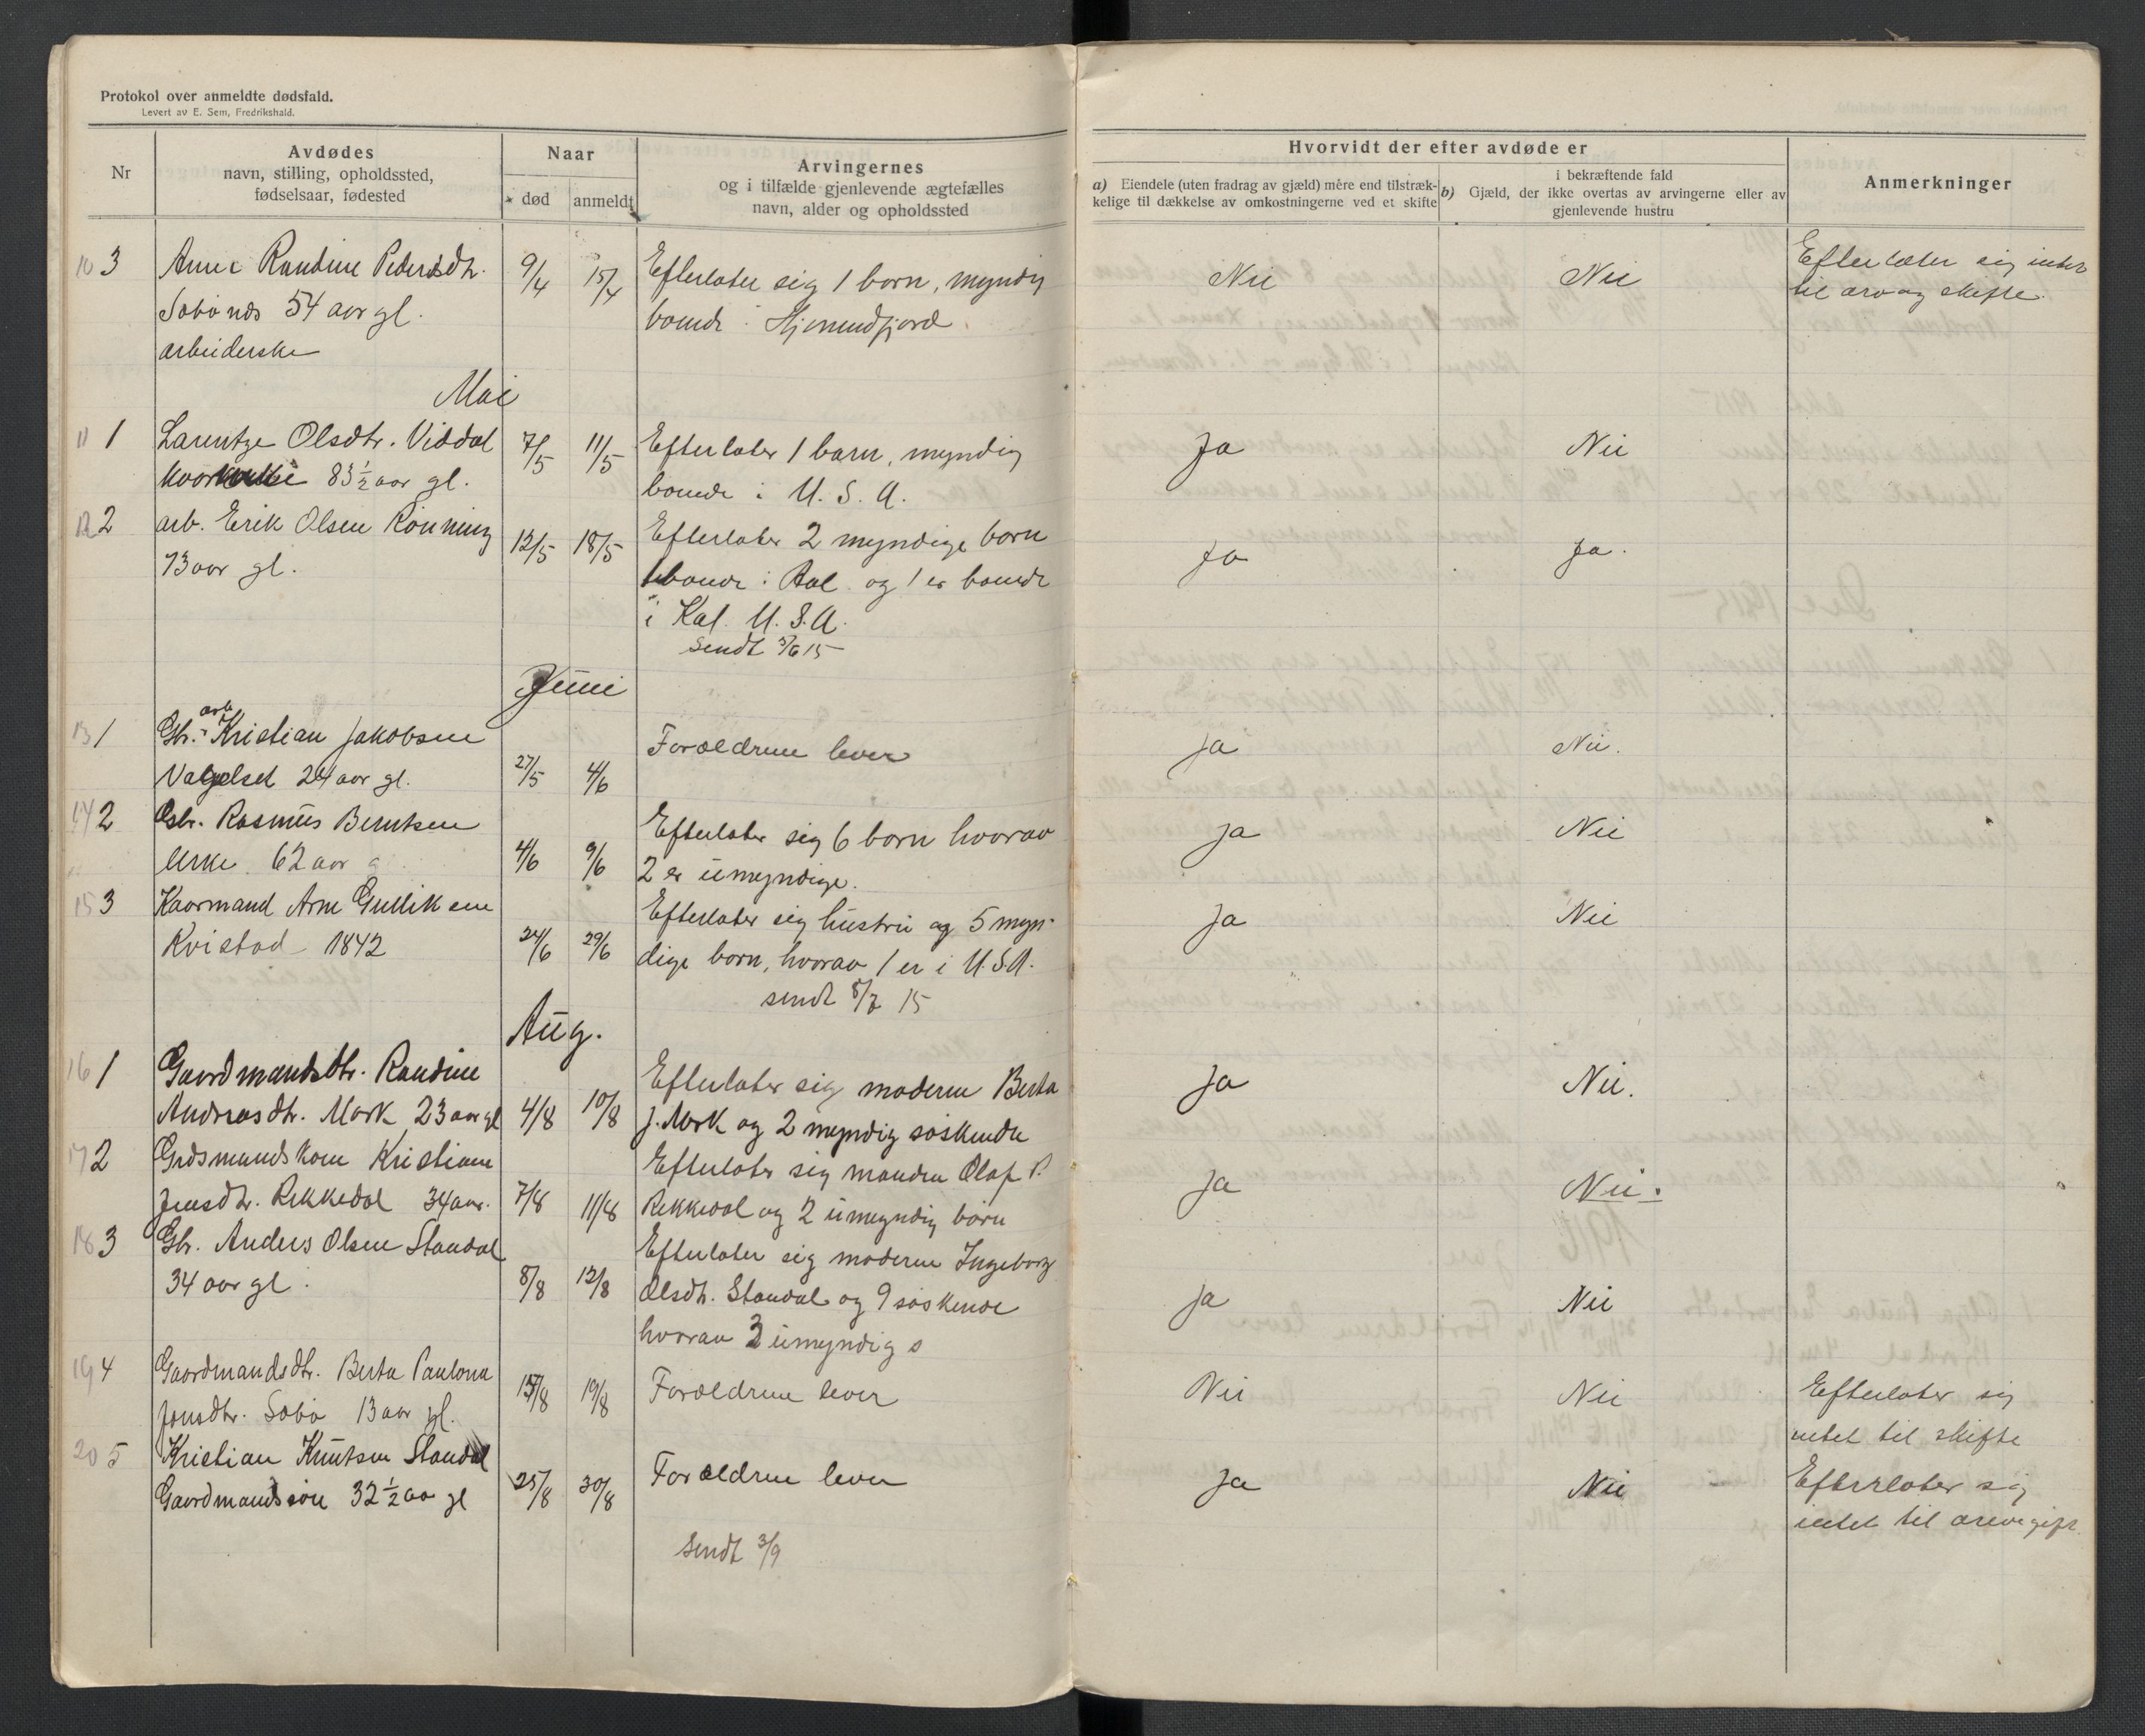 Protokol over anmeldte dødsfald.
Levert av E. Sem, Fredrikshald.
Nr
Avdødes
navn, stilling, opholdssted,
fødselsaar, fødested
Naar
død
anmeldt
Arvingernes
og i tilfælde gjenlevende ægtefælles
navn, alder og opholdssted
Hvorvidt der efter avdøde er
a) Eiendele (uten fradrag av gjæld) mere end tilstræk-
kelige til dækkelse av omkostningerne ved et skifte
i bekræftende fald
b) Gjæld, der ikke overtas av arvingerne eller av
gjenlevende hustru
Anmerkninger
10 3 Anne Randine Pedersdtr. 9/4 15/4 Efterlater sig 1 barn, myndig Nei Nei Efterlater sig intet
Säbönes 54 aar gl. boende i Hjørundfjord til arv og skifte.
arbeiderske
Mai
11 1 Larentze Olsdtr. Viddal 7/5 11/5 Efterlater 1 barn, myndig Ja Nei
83 1/2 aar gl. boende i U.S.A.
12 2 arb. Erik Olsen Rönning 12/5 18/5 Efterlater 2 myndige børn Ja Ja.
73 aar gl. 1 boende i Aal og 1 er boende
i Kal. U.S.A.
Sendt 3/6 15
Juni
13 1 Gbr. arb. Kristian Jakobsen 27/5 4/6 Forældrene lever Ja Nei.
24 aar gl.
14 2 Gbr. Rasmus Berntsen 4/6 9/6 Efterlater sig 6 børn hvorav Ja Nei
Urke 62 aar 2 er umyndige.
15 3 Kaarmand Arne Gulliksen 24/6 29/6 Efterlater sig hustru og 5 myn- Ja Nei
Kvistad 1842 dige børn, hvorav 1 er i U.S.A.
sendt 8/7 15
Aug.
16 1 Gaardmandsdtr. Randine 4/8 10/8 Efterlater sig moderen Berta Ja Nei.
Andreasdtr. Mork 23 aar gl J. Mork og 2 myndig søskende
17 2 Grdsmandskone Kristiane 7/8 11/8 Efterlater sig manden Olaf P. Ja Nei.
Jensdtr. Rekkedal 34 aar. Rekkedal og 2 umyndig børn
18 3 Gbr. Anders Olsen Standal 8/8 12/8 Efterlater sig moderen Ingeborg Ja Nei
34 aar gl. Olsdtr. Standal og 9 søskende
hvorav 3 umyndig s
19 4 Gaardmandsdtr. Berta Paulona 15/8 19/8 Forældrene lever Nei Nei Efterlater sig
Jonsdtr. Säbö 13 aar gl. intet til skifte
20 5 Kristian Knutsen Standal 25/8 30/8 Forældrene lever Ja Nei Efterlater sig
Gaardmandssön 32 1/2 aar gl intet til
Sendt 3/9